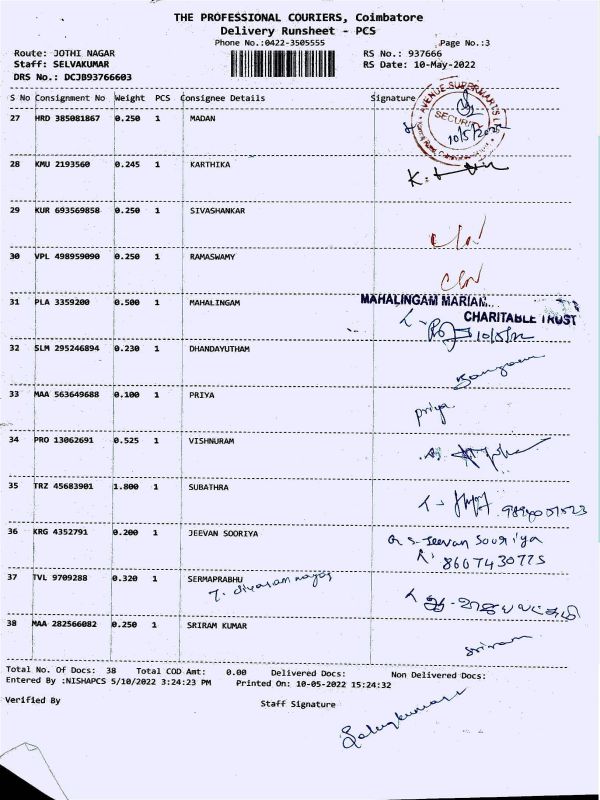 THE PROFESSIONAL COURIERS, Coimbatore
Delivery Runsheet - PCS
Phone No.:0422-3505555 Page No.:3
Route: JOTHI NAGAR RS No.: 937666
Staff: SELVAKUMAR RS Date: 10-May-2022
DRS No.: DCJB93766603
S No Consignment No Weight PCS Consignee Details Signature
AVENUE SUPERMARTS
SECURITY
10/5/2022
27 HRD 385081867 0.250 1 MADAN
28 KMU 2193560 0.245 1 KARTHIKA
29 KUR 693569858 0.250 1 SIVASHANKAR
30 VPL 498959090 0.250 1 RAMASWAMY
31 PLA 3359200 0.500 1 MAHALINGAM MAHALINGAM MARIAM
CHARITABLE TRUST
10/5/22
32 SLM 295246894 0.230 1 DHANDAYUTHAM
33 MAA 563649688 0.100 1 PRIYA
priya
34 PRO 13062691 0.525 1 VISHNURAM
35 TRZ 45683901 1.800 1 SUBATHRA
36 KRG 4352791 0.200 1 JEEVAN SOORIYA S. Jeevan Sooriya
8607430775
37 TVL 9709288 0.320 1 SERMAPRABHU
38 MAA 282566082 0.250 1 SRIRAM KUMAR
sriram
Total No. Of Docs: 38 Total COD Amt: 0.00 Delivered Docs: Non Delivered Docs:
Entered By :NISHAPCS 5/10/2022 3:24:23 PM Printed On: 10-05-2022 15:24:32
Verified By Staff Signature
Selvakumar